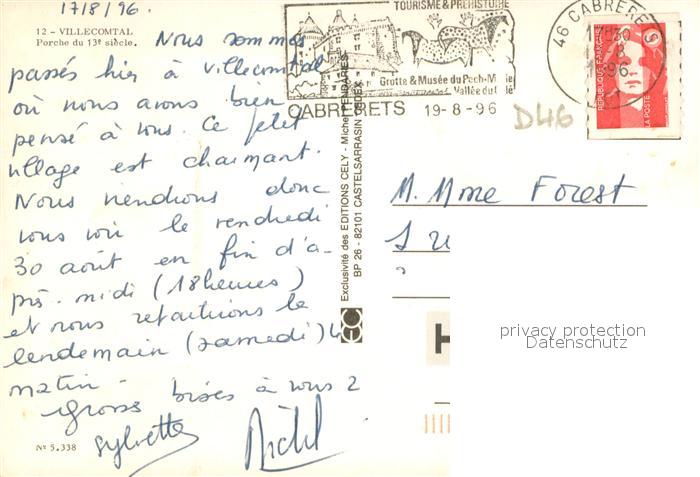 17/8/96.
12 - VILLECOMTAL
Porche du 13e siècle.
Nous sommes
passés hier à Villecomtal
où nous avons bien
pensé à vous. Ce petit
village est charmant.
Nous viendrons donc
vous voir le vendredi
30 août en fin d'a-
près-midi (18 heures)
et nous repartirons le
lendemain (samedi)
matin -
Grosses bises à vous 2
Sylvette Michel
No 5.338
Exclusivité des EDITIONS CELY - Michel TENDARIES
BP 26 - 82101 CASTELSARRASIN CEDEX
TOURISME & PREHISTOIRE
Grotte & Musée du Pech-Merle
Vallée du Célé
CABRERETS 19-8-96
46 CABRERETS
96
REPUBLIQUE FRANÇAISE
LA POSTE
D46
M. Mme Forest
privacy protection
Datenschutz